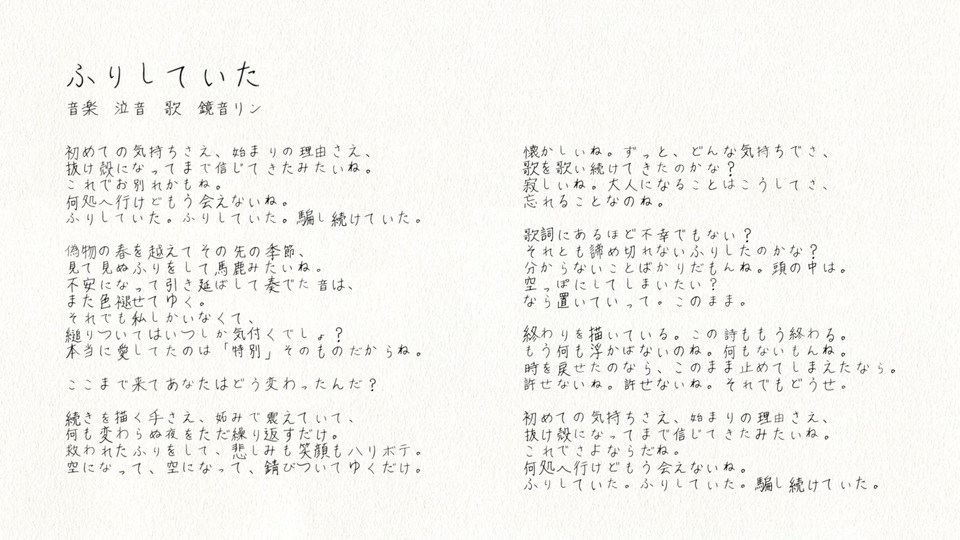 ふりしていた
音楽　泣音　歌　鏡音リン
初めての気持ちさえ、始まりの理由さえ、
抜け殻になってまで信じてきたみたいね。
これでお別れかもね。
何処へ行けどもう会えないね。
ふりしていた。ふりしていた。騙し続けていた。
偽物の春を越えてその先の季節、
見て見ぬふりをして馬鹿みたいね。
不安になって引き延ばして奏でた音は、
また色褪せてゆく。
それでも私しかいなくて、
縋りついてはいつしか気付くでしょ？
本当に愛してたのは「特別」そのものだからね。
ここまで来てあなたはどう変わったんだ？
続きを描く手さえ、妬みで震えていて、
何も変わらぬ夜をただ繰り返すだけ。
救われたふりをして、悲しみも笑顔もハリボテ。
空になって、空になって、錆びついてゆくだけ。
懐かしいね。ずっと、どんな気持ちでさ、
歌を歌い続けてきたのかな？
寂しいね。大人になることはこうしてさ、
忘れることなのね。
歌詞にあるほど不幸でもない？
それとも諦め切れないふりしたのかな？
分からないことばかりだもんね。頭の中は。
空っぽにしてしまいたい？
なら置いていって。このまま。
終わりを描いている。この詩ももう終わる。
もう何も浮かばないのね。何もないもんね。
時を戻せたのなら、このまま止めてしまえたなら。
許せないね。許せないね。それでもどうせ。
初めての気持ちさえ、始まりの理由さえ、
抜け殻になってまで信じてきたみたいね。
これでさよならだね。
何処へ行けどもう会えないね。
ふりしていた。ふりしていた。騙し続けていた。